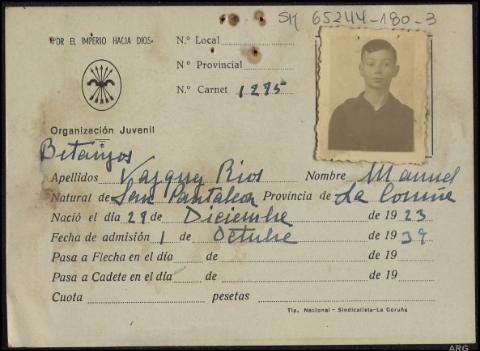 SM 65244-180-3
POR EL IMPERIO HACIA DIOS
N.º Local
N.º Provincial
N.º Carnet 1285
Organización Juvenil
Betanzos
Apellidos Vazquez Rios Nombre Manuel
Natural de San Pantaleon Provincia de La Coruña
Nació el día 28 de Diciembre de 1923
Fecha de admisión 1 de Octubre de 1939
Pasa a Flecha en el día de de 19
Pasa a Cadete en el día de de 19
Cuota pesetas
Tip. Nacional - Sindicalista-La Coruña
ARG